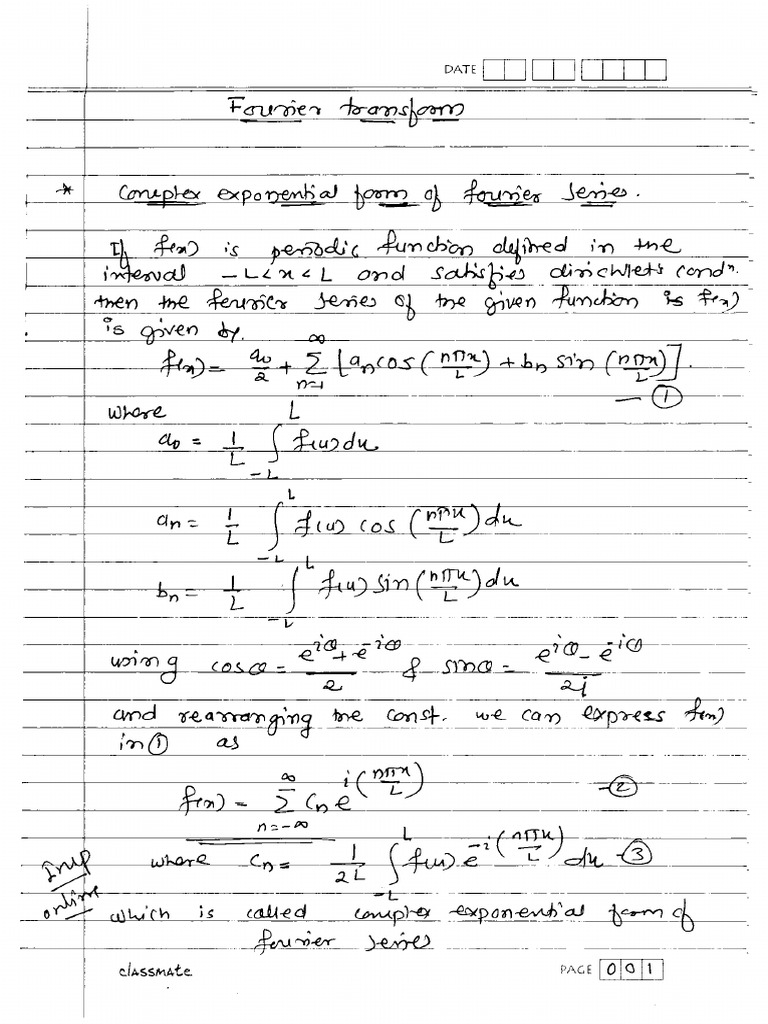 DATE
Fourier transform
* Complex exponential form of fourier series.
If f(x) is periodic function defined in the
interval -L<x<L and satisfies dirichlet's condⁿ.
then the fourier series of the given function is f(x)
is given by.
f(x) = a₀/2 + ∑_{n=1}^{∞} [aₙ cos(nπx/L) + bₙ sin(nπx/L)]. — ①
where
a₀ = 1/L ∫_{-L}^{L} f(u) du
aₙ = 1/L ∫_{-L}^{L} f(u) cos(nπu/L) du
bₙ = 1/L ∫_{-L}^{L} f(u) sin(nπu/L) du
using cosθ = (e^{iθ} + e^{-iθ})/2 & sinθ = (e^{iθ} - e^{-iθ})/2i
and rearranging the const. we can express f(x)
in ① as
f(x) = ∑_{n=-∞}^{∞} Cₙ e^{i(nπx/L)} - ②
Imp
online
where Cₙ = 1/2L ∫_{-L}^{L} f(u) e^{-i(nπu/L)} du - ③
which is called complex exponential form of
fourier series
classmate
PAGE 001